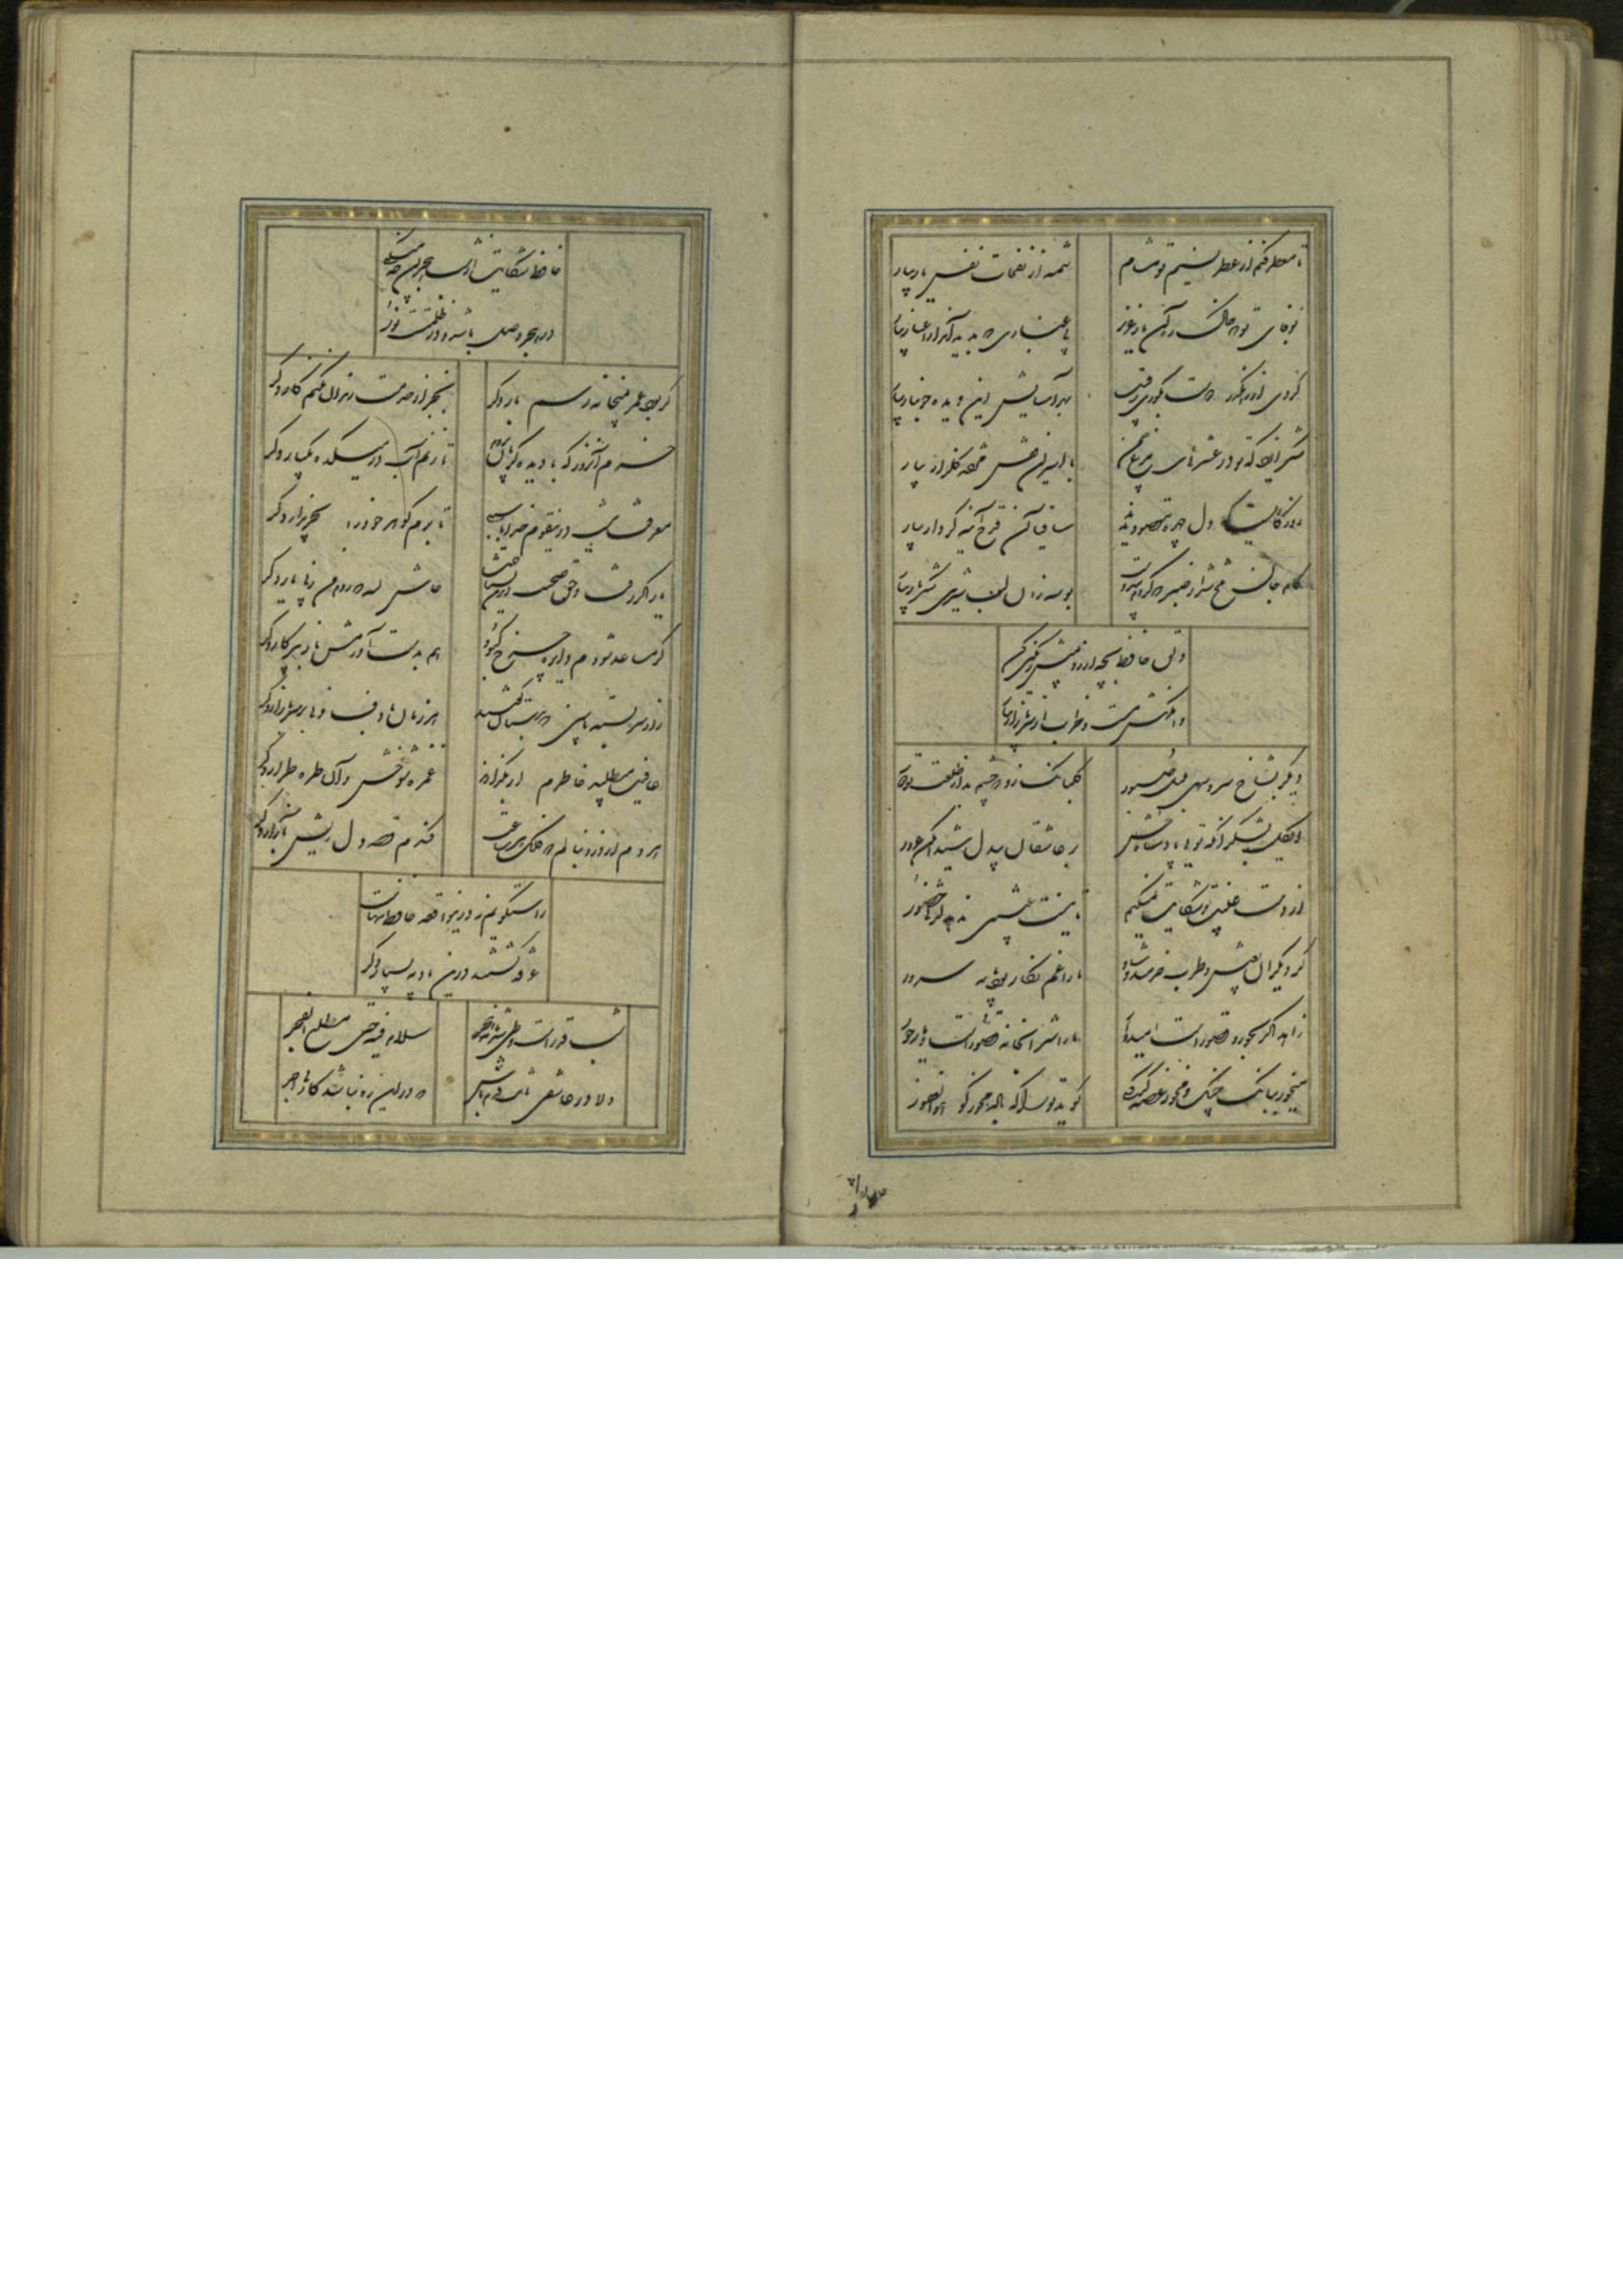 تا معطر کنم از عطر نسیم تو مشام شمه از نفحات نفس یار بیار
بوفای تو که خاک ره آن یار عزیز بی غباری که پدید آید از اغیار بیار
گردی از رهگذر دوست بکوری رقیب بهر آسایش این دیده خونبار بیار
شکر آنرا که تو در عشرتی ای مرغ چمن با اسیران قفس مژده گلزار بیار
روزگاریست که دل چهره مقصود ندید ساقیا آن قدح آینه کردار بیار
کام جان تلخ شد از صبر که کردم بی دوست بوسه زان لب شیرین شکر بار بیار
دلق حافظ بچه ارزد بمیش رنگین کن
وانگهش مست و خراب از سر بازار بیار
دیگر بشاخ سرو سهی بلبل صبور گلبانگ زد که چشم بد از طلعت تو دور
ای گل بشکر آنکه تویی پادشاه حسن بر عاشقان بیدل شیدا مکن غرور
از دست غیبت تو شکایت نمیکنم تا نیست غیبتی ندهد لذتی حضور
گر دیگران بعیش و طرب خرمند و شاد ما را غم نگار بود مایه سرور
زاهد اگر بحور و قصورست امیدوار ما را شرابخانه قصورست و یار حور
می خور ببانگ چنگ و مخور غصه گر کسی گوید ترا که باده مخور گو هو الغفور
حافظ شکایت از شب هجران چه میکنی
در هجر وصل باشد و در ظلمتست نور
گر بود عمر بمیخانه رسم بار دگر بجز از خدمت رندان نکنم کار دگر
خرم آنروز که با دیده گریان بروم تا زنم آب در میکده یکبار دگر
معرفت نیست درین قوم خدایا سببی تا برم گوهر خود را بخریدار دگر
یار اگر رفت و حق صحبت دیرین نشناخت حاش لله که روم من ز پی یار دگر
گر مساعد شودم دایره چرخ کبود هم بدست آورمش باز بپرکار دگر
راز سربسته ما بین که بدستان گفتند هر زمان با دف و نی بر سر بازار دگر
عافیت میطلبد خاطرم ار بگذارند غمزه شوخش و آن طره طرار دگر
هر دم از درد بنالم که فلک هر ساعت کندم قصد دل ریش بآزار دگر
بازگویم نه درین واقعه حافظ تنهاست
غرقه گشتند درین بادیه بسیار دگر
شب قدرست و طی شد نامه هجر سلام فیه حتی مطلع الفجر
دلا در عاشقی ثابت قدم باش که در این ره نباشد کار بی اجر